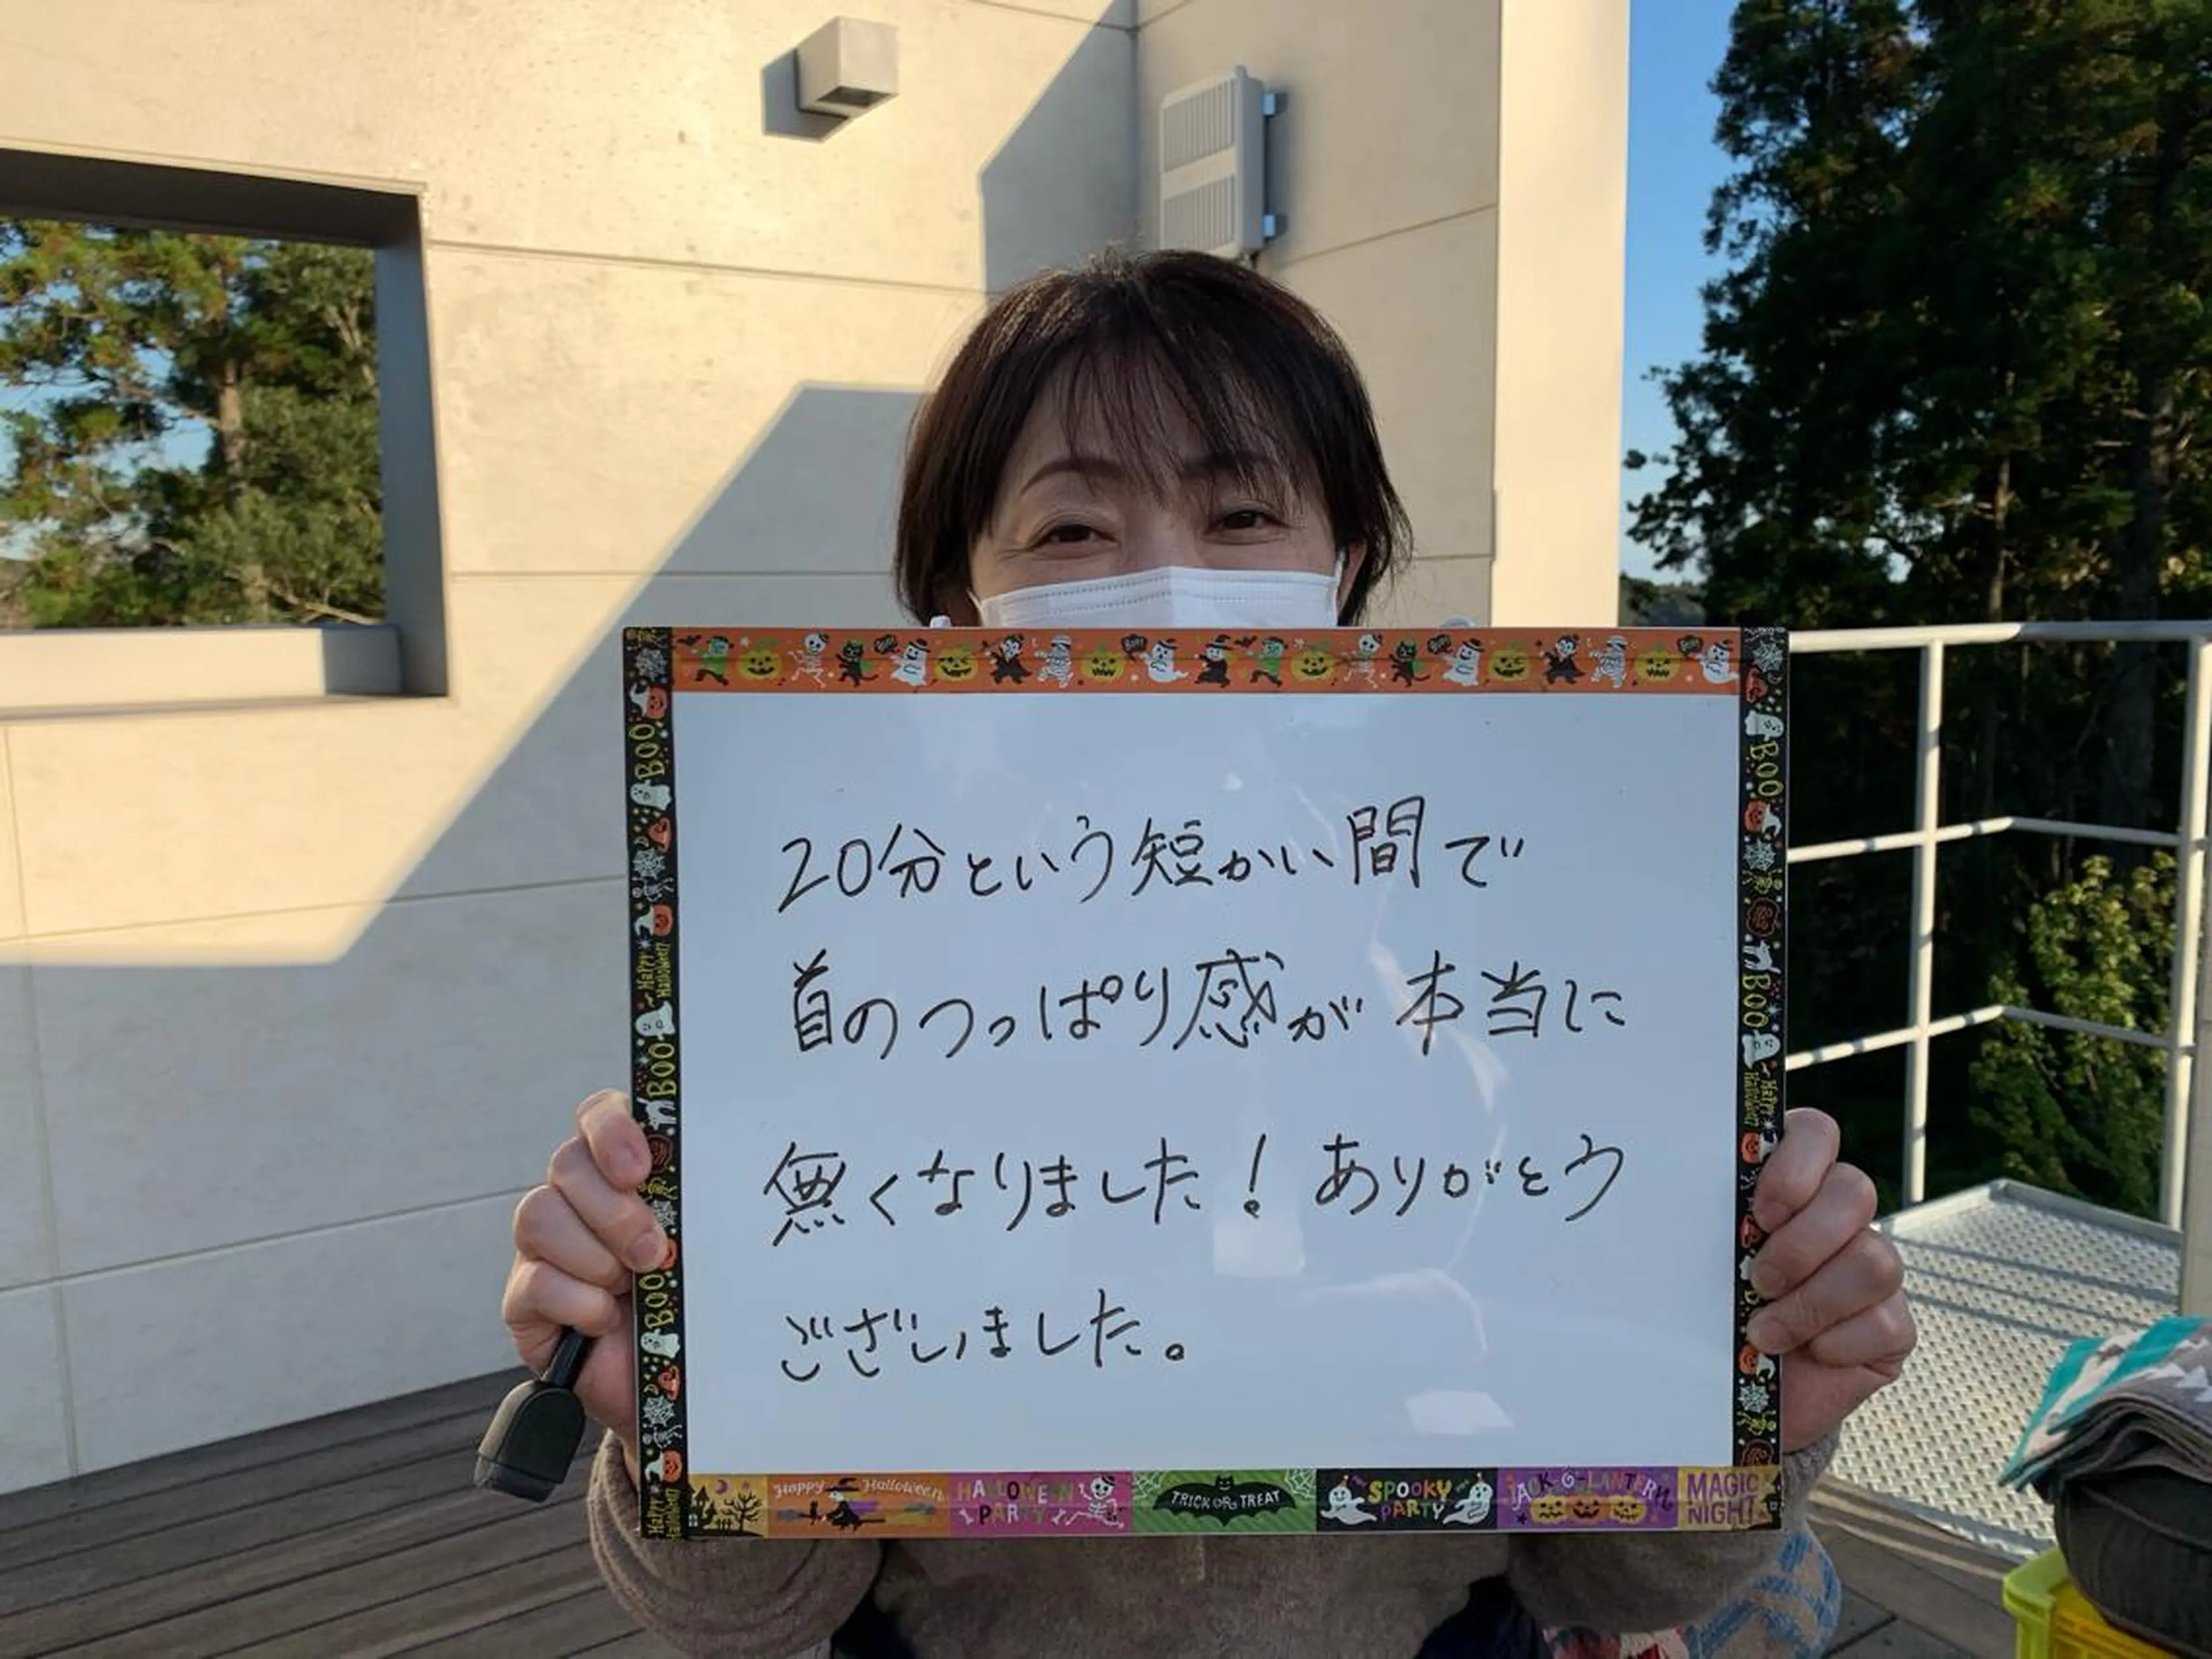 20分という短かい間で
首のつっぱり感が本当に
無くなりました！ありがとう
ございました。
BOO
Happy Halloween
BOO
BOO
Happy Halloween
BOO
BOO
Happy Halloween
Happy Halloween
HALLOWEEN PARTY
TRICK OR TREAT
SPOOKY PARTY
JACK-O-LANTERN
MAGIC NIGHT